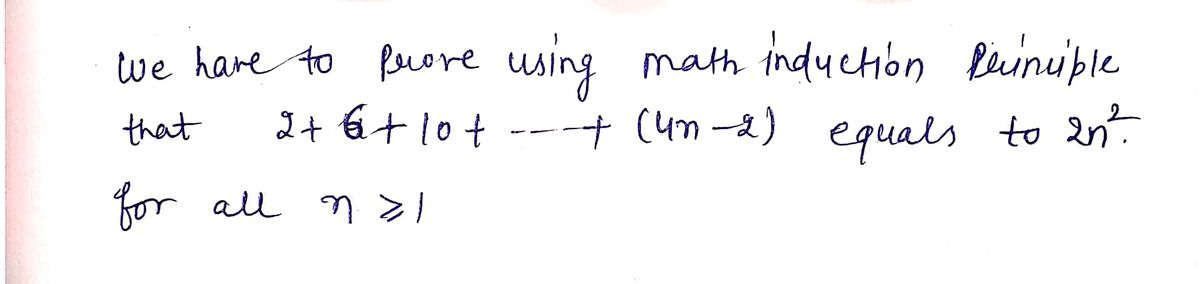 We have to prove using math induction Principle
that 2+ 6+ 10+ ---+ (4n-2) equals to 2n².
for all n ≥1